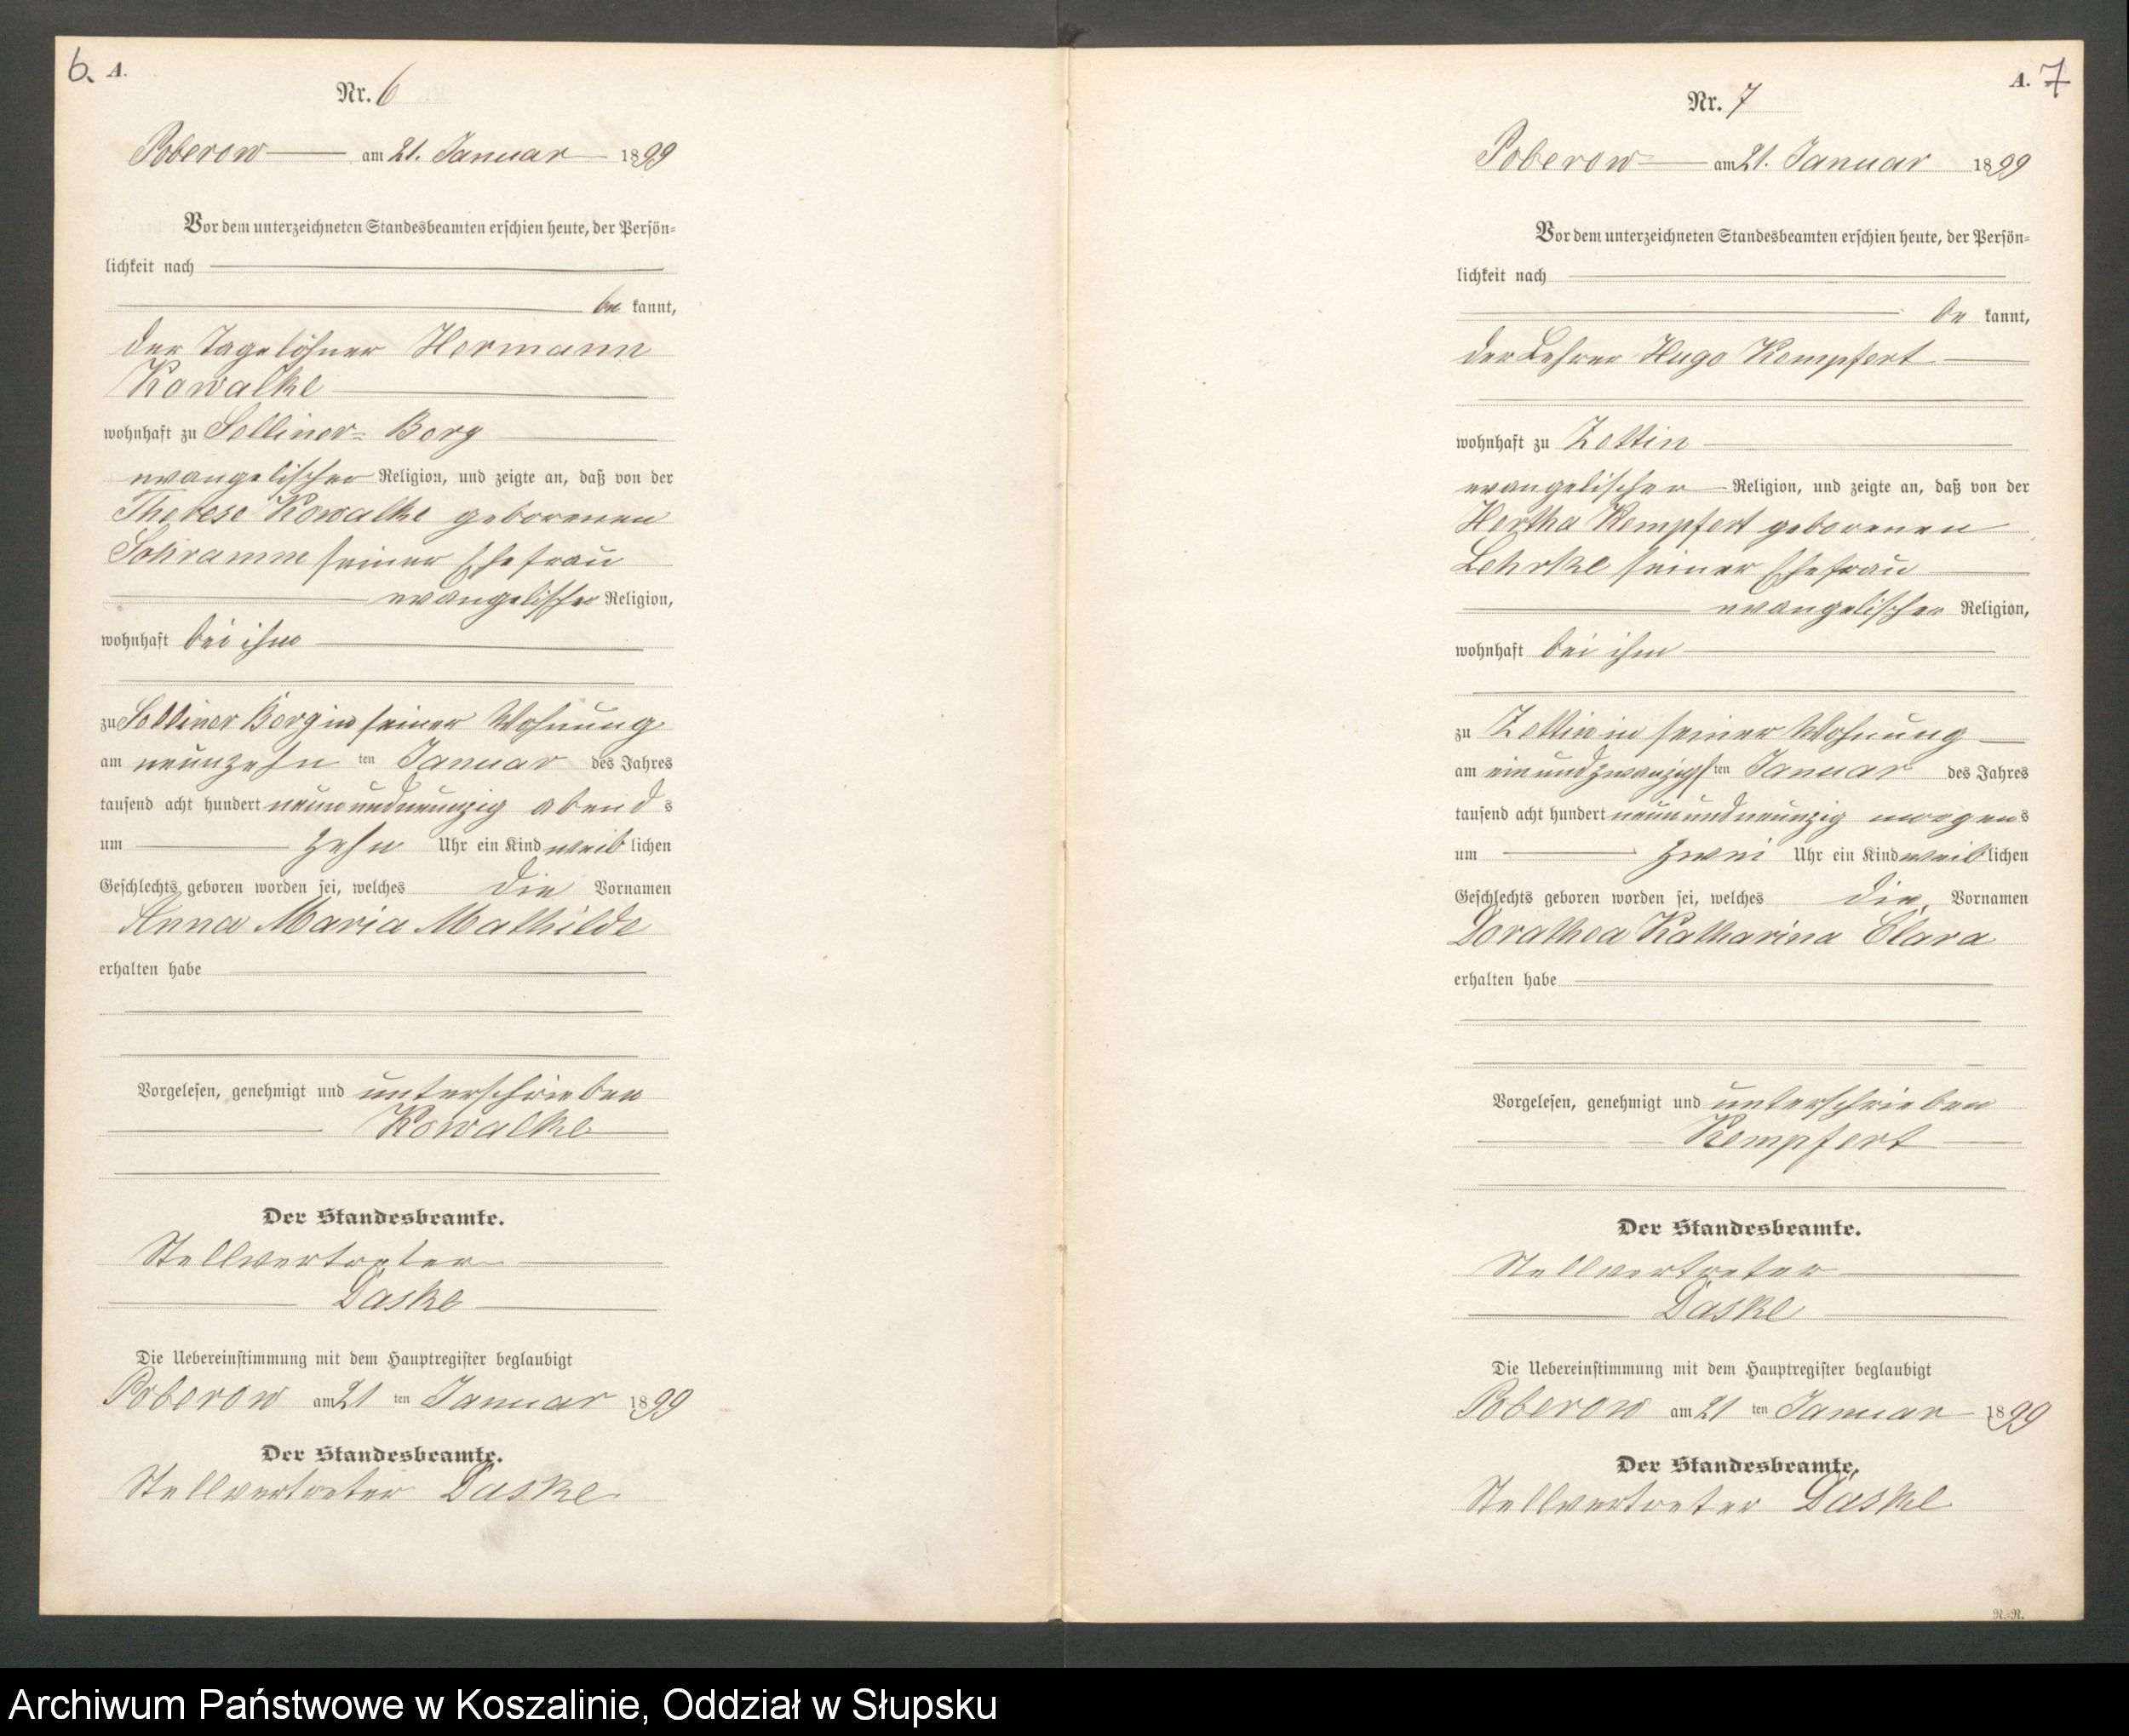 6. A.
Nr. 6
Poberow am 21. Januar 1899
Vor dem unterzeichneten Standesbeamten erschien heute, der Persön-
lichkeit nach
be kannt,
der Tagelöhner Hermann
Kowalke
wohnhaft zu Selliner-Berg
evangelischer Religion, und zeigte an, daß von der
Therese Kowalke geborenen
Schramm seiner Ehefrau
evangelischer Religion,
wohnhaft bei ihm
zu Selliner Berg in seiner Wohnung
am neunzehn ten Januar des Jahres
tausend acht hundert neunundneunzig abend s
um zehn Uhr ein Kind weib lichen
Geschlechts geboren worden sei, welches die Vornamen
Anna Maria Mathilde
erhalten habe
Vorgelesen, genehmigt und unterschrieben
Kowalke
Der Standesbeamte.
Stellvertreter
Daske
Die Uebereinstimmung mit dem Hauptregister beglaubigt
Poberow am 21 ten Januar 1899
Der Standesbeamte.
Stellvertreter Daske
A. 7
Nr. 7
Poberow am 21. Januar 1899
Vor dem unterzeichneten Standesbeamten erschien heute, der Persön-
lichkeit nach
be kannt,
der Lehrer Hugo Kempfert
wohnhaft zu Zettin
evangelischer Religion, und zeigte an, daß von der
Hertha Kempfert geborenen
Lehrke seiner Ehefrau
evangelischer Religion,
wohnhaft bei ihm
zu Zettin in seiner Wohnung
am einundzwanzigs ten Januar des Jahres
tausend acht hundert neunundneunzig morgen s
um zwei Uhr ein Kind weib lichen
Geschlechts geboren worden sei, welches die Vornamen
Dorathea Katharina Clara
erhalten habe
Vorgelesen, genehmigt und unterschrieben
Kempfert
Der Standesbeamte.
Stellvertreter
Daske
Die Uebereinstimmung mit dem Hauptregister beglaubigt
Poberow am 21 ten Januar 1899
Der Standesbeamte.
Stellvertreter Daske
R.-R.
Archiwum Państwowe w Koszalinie, Oddział w Słupsku